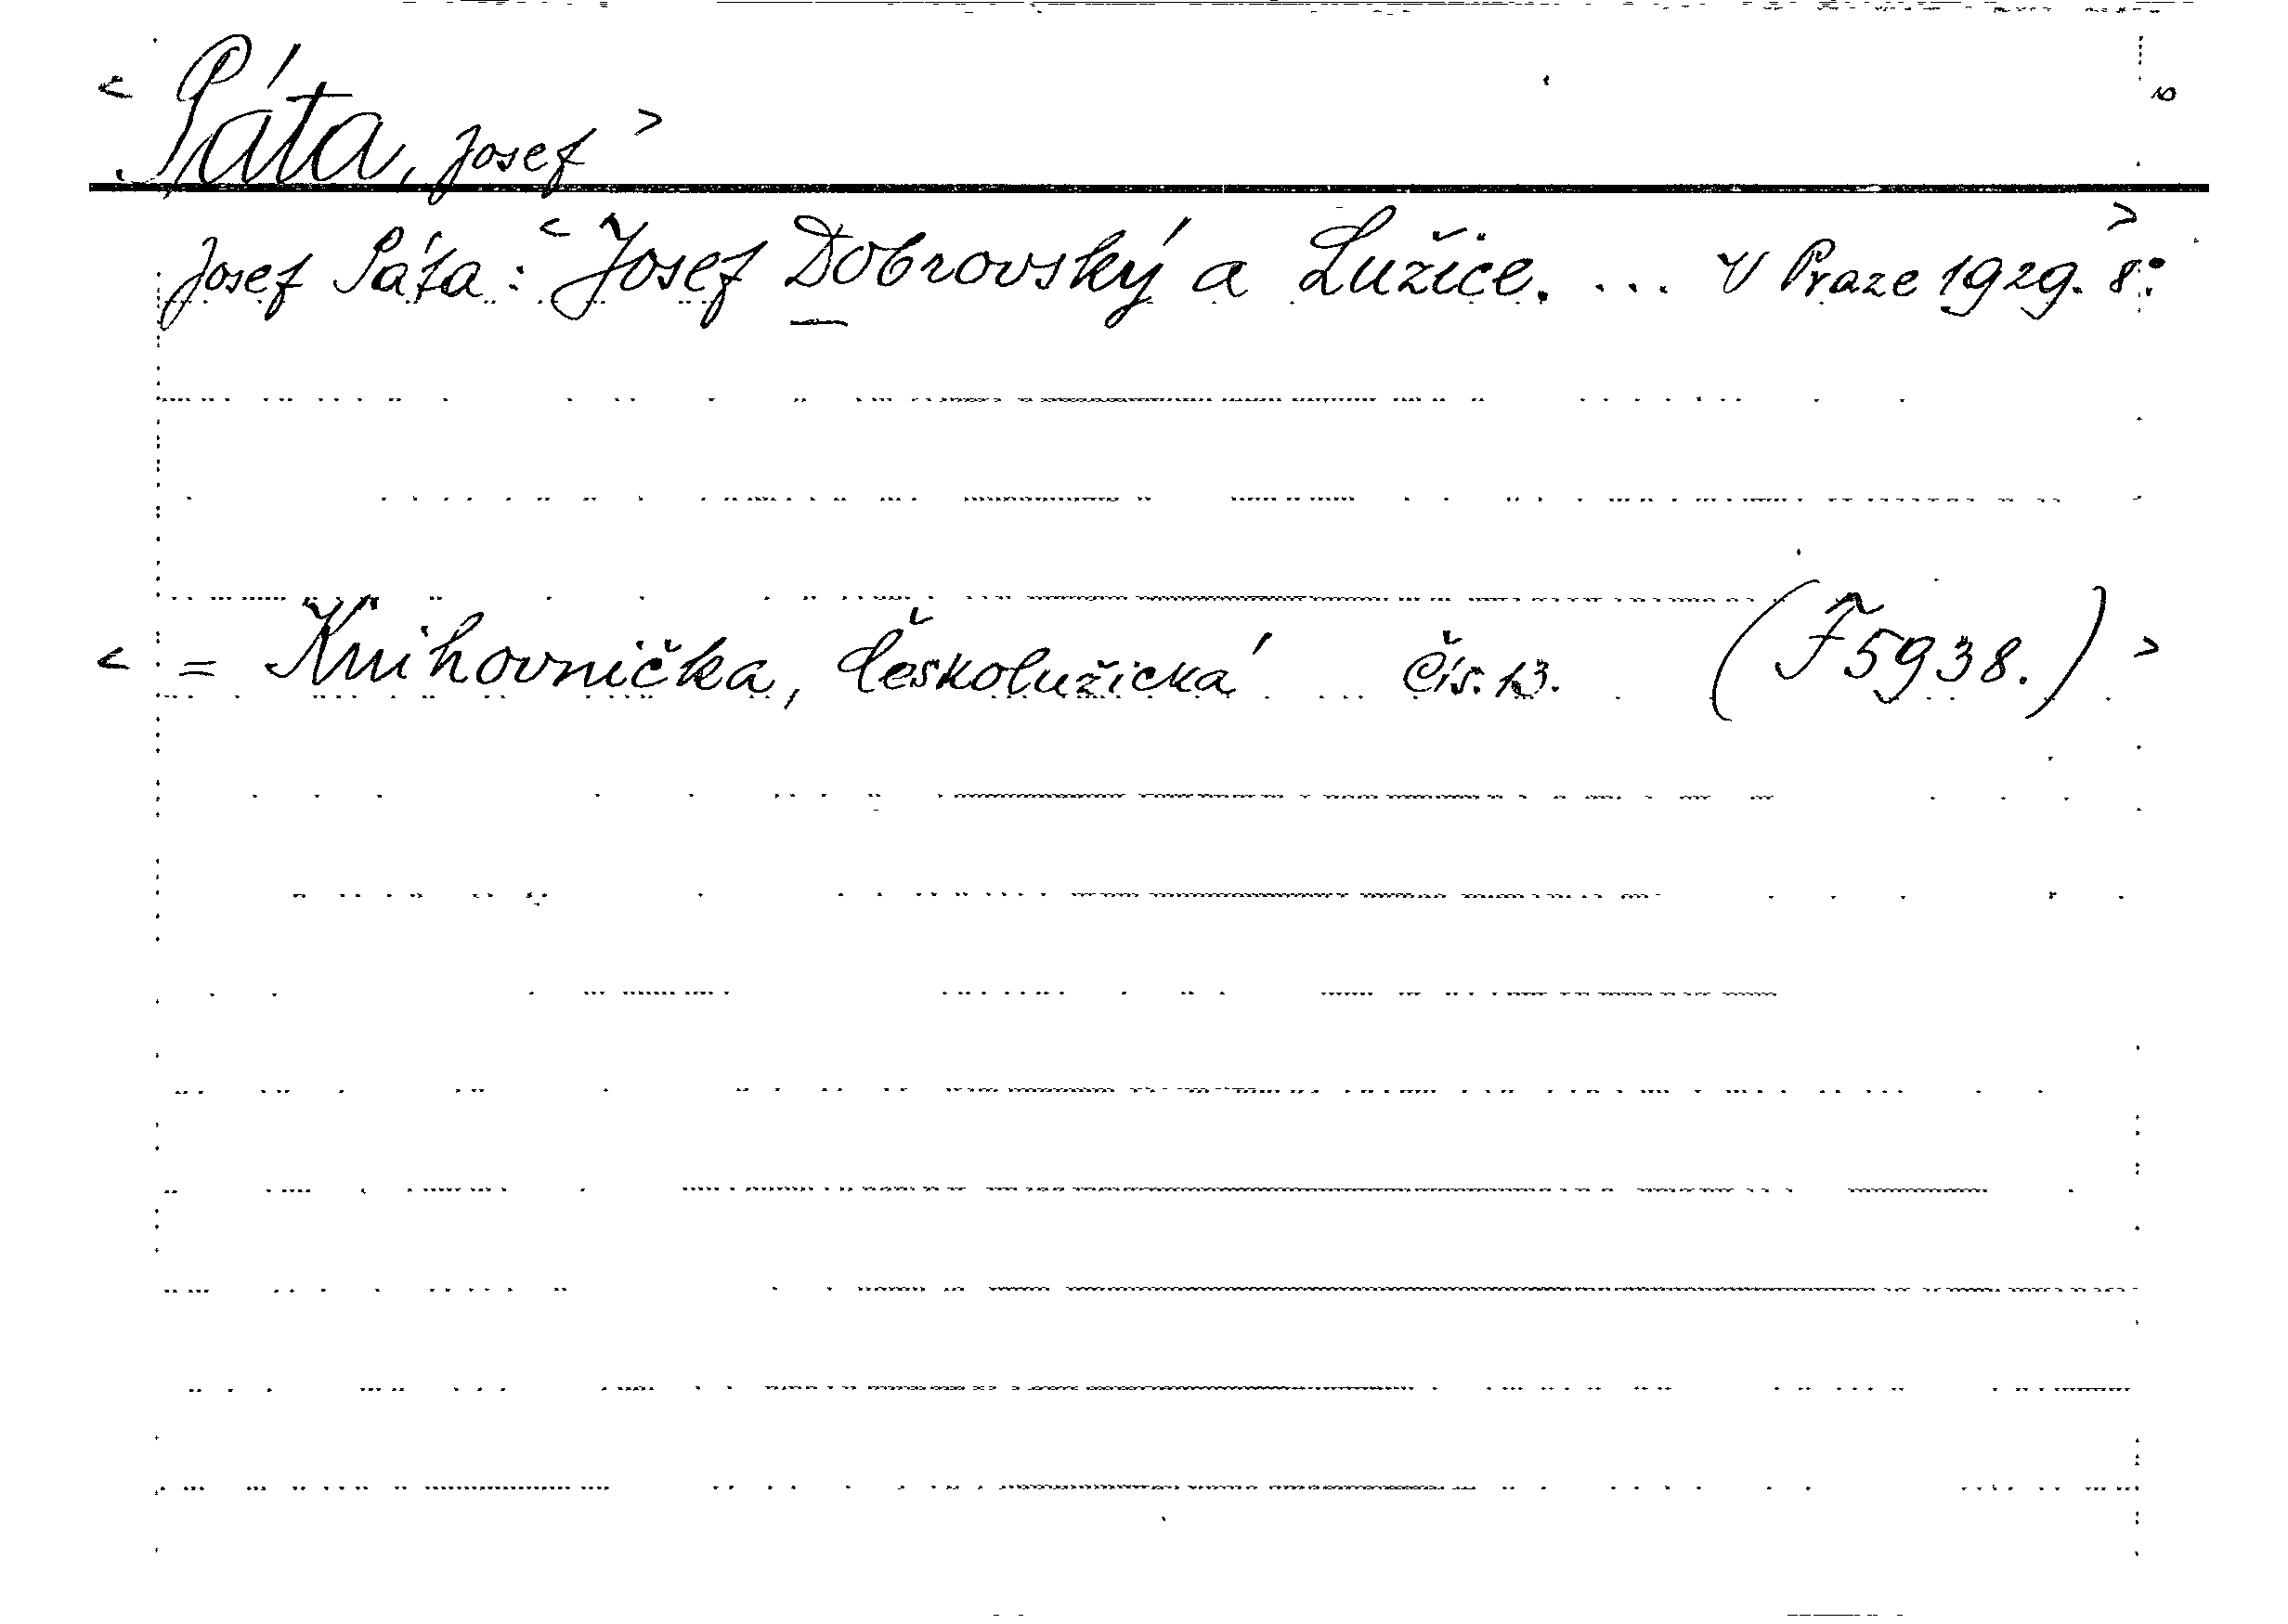 < Páta, Josef >
Josef Páta: < Josef Dobrovský a Lužice. ... V Praze 1929. 8º. >
< = Knihovnička, Českolužická čís. 13. (F 5938.) >